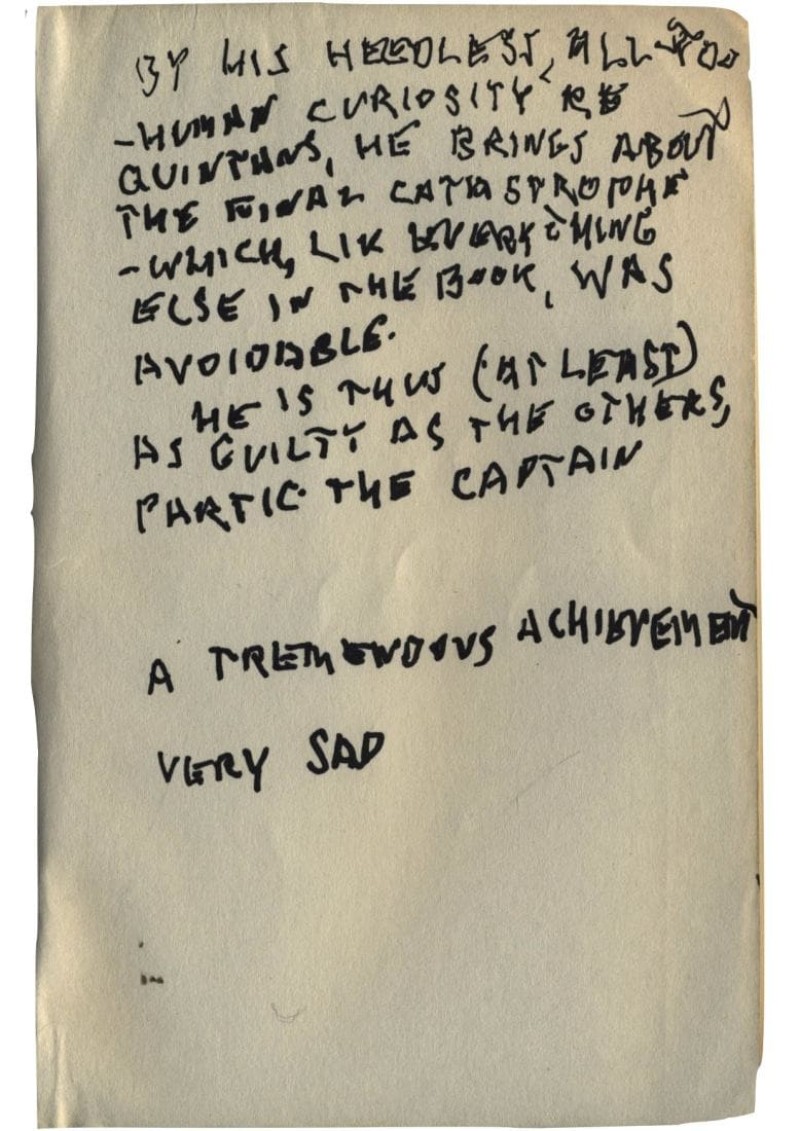 BY HIS HEEDLESS, ALL-TOO
-HUMAN CURIOSITY RE
QUINTANS, HE BRINGS ABOUT
THE FINAL CATASTROPHE
-WHICH, LIK EVERYTHING
ELSE IN THE BOOK, WAS
AVOIDABLE.
HE IS THUS (AT LEAST)
AS GUILTY AS THE OTHERS,
PARTIC. THE CAPTAIN
A TREMENDOUS ACHIEVEMENT
VERY SAD